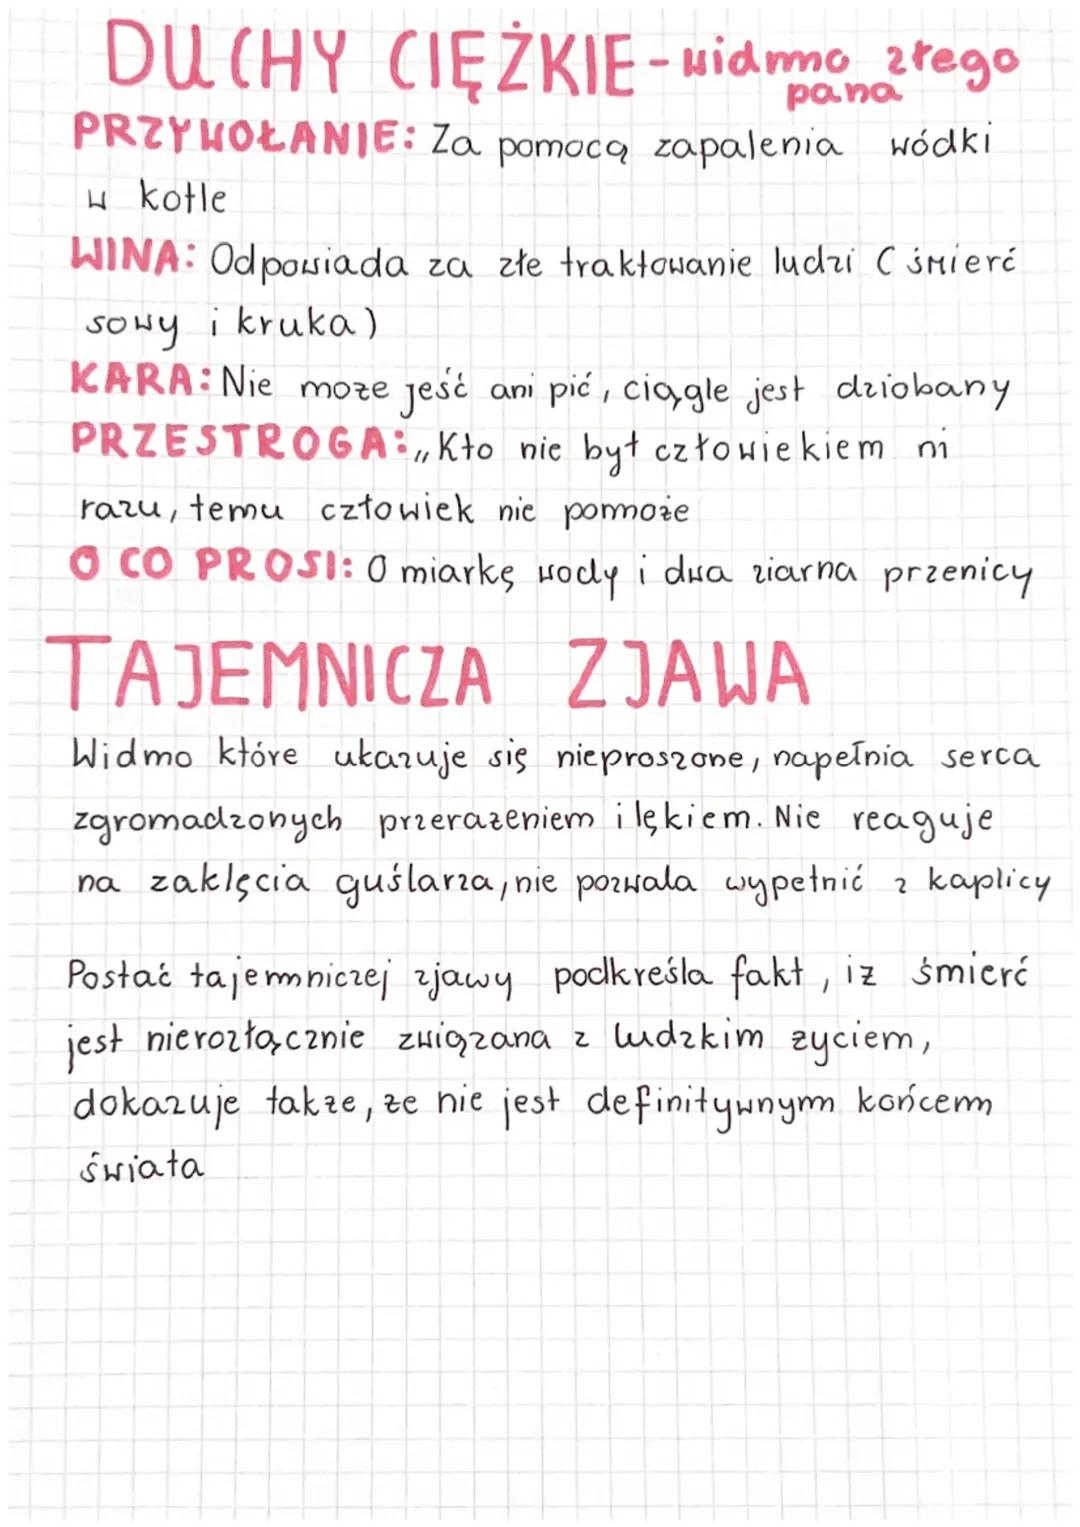 DUCHY CIĘŻKIE - widmo złego
pana
PRZYWOŁANIE: Za pomocą zapalenia wódki
w kotle
WINA: Odpowiada za złe traktowanie ludzi (śmierć
sowy i kruka)
KARA: Nie może jeść ani pić, ciągle jest dziobany
PRZESTROGA: „Kto nie był człowiekiem ni
razu, temu człowiek nic pomoże
O CO PROSI: O miarkę wody i dwa ziarna przenicy
TAJEMNICZA ZJAWA
Widmo które ukazuje się nieproszone, napełnia serca
zgromadzonych przerażeniem i lękiem. Nie reaguje
na zaklęcia guślarza, nie pozwala wypełnić z kaplicy
Postać tajemniczej zjawy podkreśla fakt, iż śmierć
jest nierozłącznie związana z ludzkim życiem,
dokazuje także, że nie jest definitywnym końcem
świata